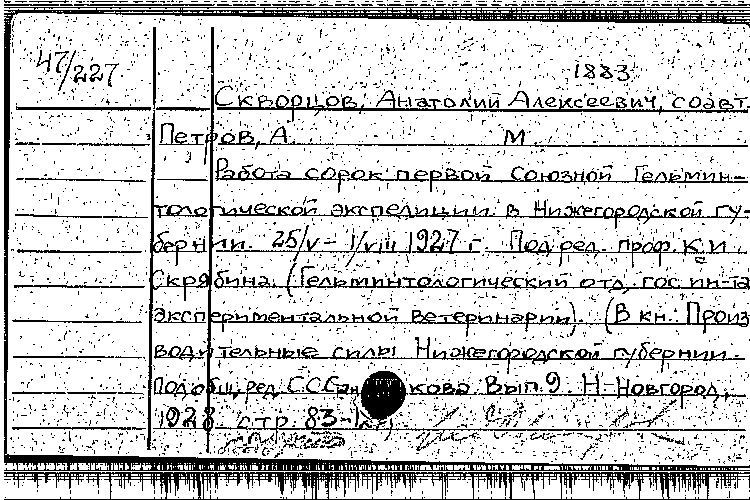 47/227
1883
Скворцов, Анатолий Алексеевич, соавт.
Петров, А. М
Работа сорок первой Союзной Гельмин-
тологической экспедиции в Нижегородской гу-
бернии. 25/V – 1/VIII 1927 г. Под ред. проф. К.И.
Скрябина. (Гельминтологический отд. гос. ин-та
экспериментальной ветеринарии). (В кн.: Произ
водительные силы Нижегородской губернии.
Под общ. ред. С.С. Вып. 9. Н-Новгород,
1928 стр. 83-